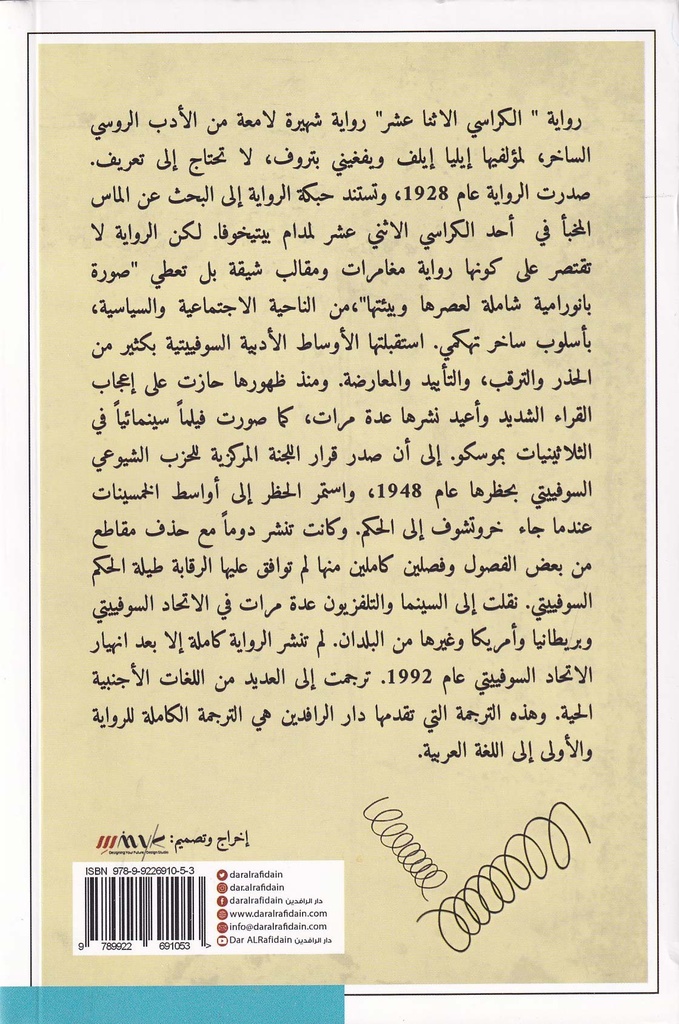 رواية " الكراسي الاثنا عشر" رواية شهيرة لامعة من الأدب الروسي
الساخر، لمؤلفيها إيليا إيلف ويفغيني بتروف، لا تحتاج إلى تعريف.
صدرت الرواية عام 1928، وتستند حبكة الرواية إلى البحث عن الماس
المخبأ في أحد الكراسي الاثني عشر لمدام بيتيخوفا. لكن الرواية لا
تقتصر على كونها رواية مغامرات ومقالب شيقة بل تعطي "صورة
بانورامية شاملة لعصرها وبيئتها"،من الناحية الاجتماعية والسياسية،
بأسلوب ساخر تهكمي. استقبلتها الأوساط الأدبية السوفييتية بكثير من
الحذر والترقب، والتأييد والمعارضة. ومنذ ظهورها حازت على إعجاب
القراء الشديد وأعيد نشرها عدة مرات، كما صورت فيلماً سينمائياً في
الثلاثينيات بموسكو. إلى أن صدر قرار اللجنة المركزية للحزب الشيوعي
السوفييتي بحظرها عام 1948، واستمر الحظر إلى أواسط الخمسينات
عندما جاء خروتشوف إلى الحكم. وكانت تنشر دوماً مع حذف مقاطع
من بعض الفصول وفصلين كاملين منها لم توافق عليها الرقابة طيلة الحكم
السوفييتي. نقلت إلى السينما والتلفزيون عدة مرات في الاتحاد السوفييتي
وبريطانيا وأمريكا وغيرها من البلدان. لم تنشر الرواية كاملة إلا بعد انهيار
الاتحاد السوفييتي عام 1992. ترجمت إلى العديد من اللغات الأجنبية
الحية. وهذه الترجمة التي تقدمها دار الرافدين هي الترجمة الكاملة للرواية
والأولى إلى اللغة العربية.
إخراج وتصميم:
Designing Your Future Design Studio
ISBN 978-9-9226910-5-3
9 789922 691053 >
daralrafidain
dar.alrafidain
daralrafidain دار الرافدين
www.daralrafidain.com
info@daralrafidain.com
Dar ALRafidain دار الرافدين